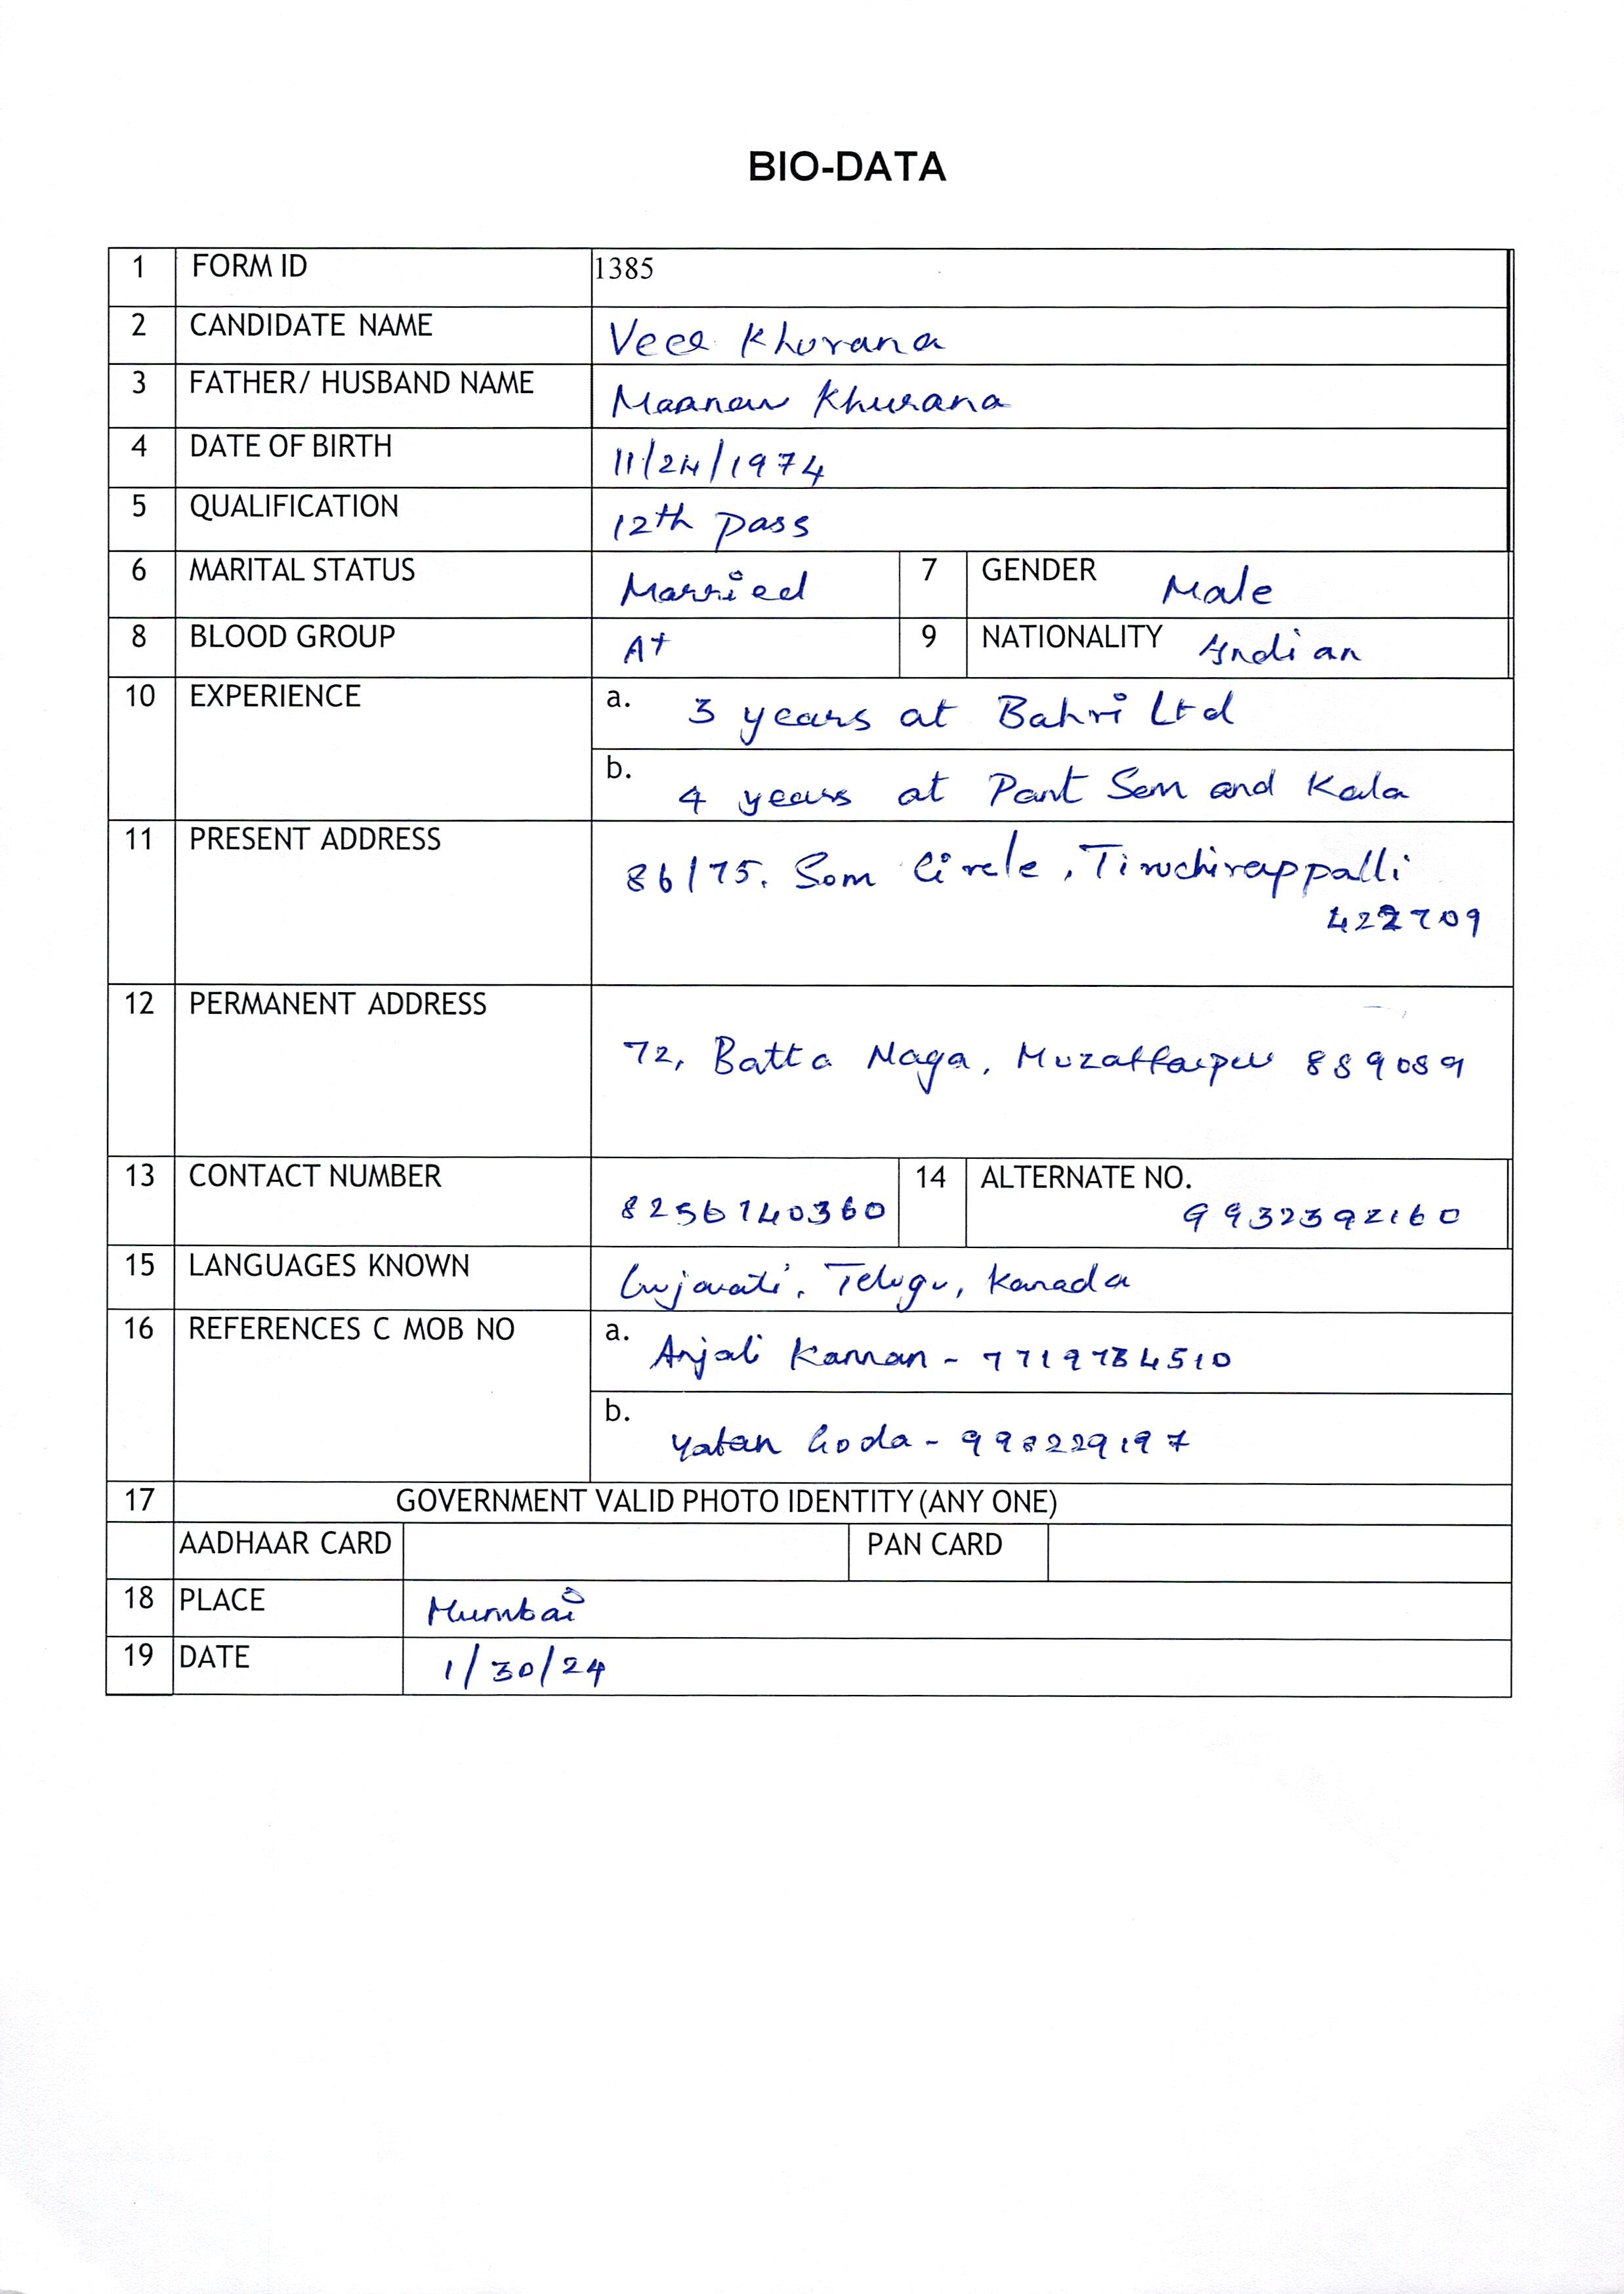 BIO-DATA
1 FORM ID 1385
2 CANDIDATE NAME Veer Khurana
3 FATHER/ HUSBAND NAME Maanav Khurana
4 DATE OF BIRTH 11/24/1974
5 QUALIFICATION 12th pass
6 MARITAL STATUS Married 7 GENDER Male
8 BLOOD GROUP A+ 9 NATIONALITY Indian
10 EXPERIENCE a. 3 years at Bahri Ltd
b. 4 years at Pant Sem and Kala
11 PRESENT ADDRESS 86/75, Som Circle, Tiruchirappalli
422709
12 PERMANENT ADDRESS 72, Batta Naga, Muzaffarpur 889089
13 CONTACT NUMBER 8256740360 14 ALTERNATE NO.
9932392160
15 LANGUAGES KNOWN Gujarati, Telugu, Kanada
16 REFERENCES C MOB NO a. Anjali Kannan -
b. Yatan Goda - 998229197
17 GOVERNMENT VALID PHOTO IDENTITY (ANY ONE)
AADHAAR CARD PAN CARD
18 PLACE Mumbai
19 DATE 1/30/24